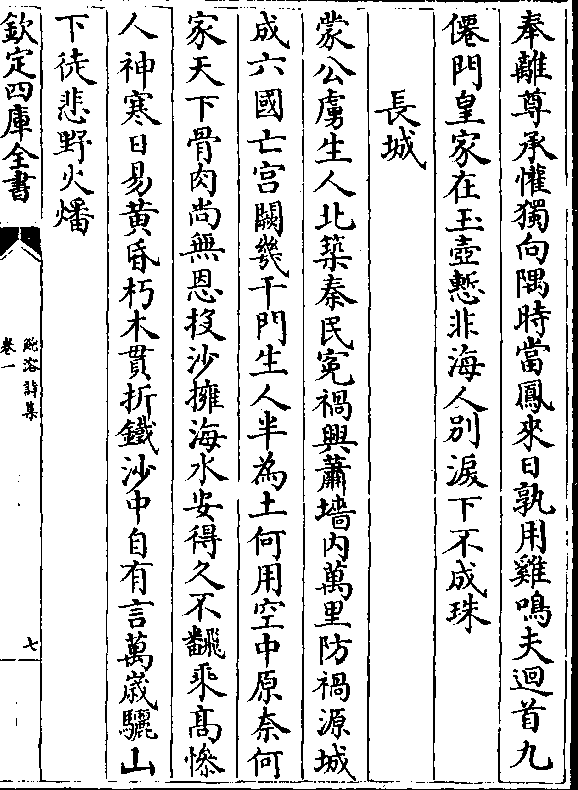 奉離尊承懽獨向隅時當鳳來日孰用雞鳴夫迴首九
僊門皇家在玉壺慙非海人別淚下不成珠
長城
蒙公虜生人北築秦民冤禍興蕭墻内萬里防禍源城
成六國亡宫闕幾千門生人半為土何用空中原奈何
家天下骨肉尚無恩投沙擁海水安得久不飜乘髙慘
人神寒日易黄昏朽木貫折鐵沙中自有言萬嵗驪山
下徒悲野火燔
欽定四庫全書
毗陵詩集
卷一
七